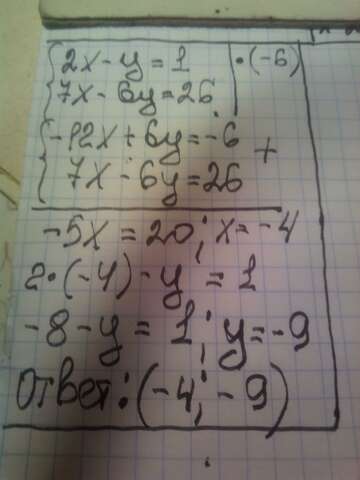 2x - y = 1 | · (-6)
7x - 6y = 26
-12x + 6y = -6
+
7x - 6y = 26
-5x = 20; x = -4
2 · (-4) - y = 1
-8 - y = 1; y = -9
Ответ: (-4; -9)